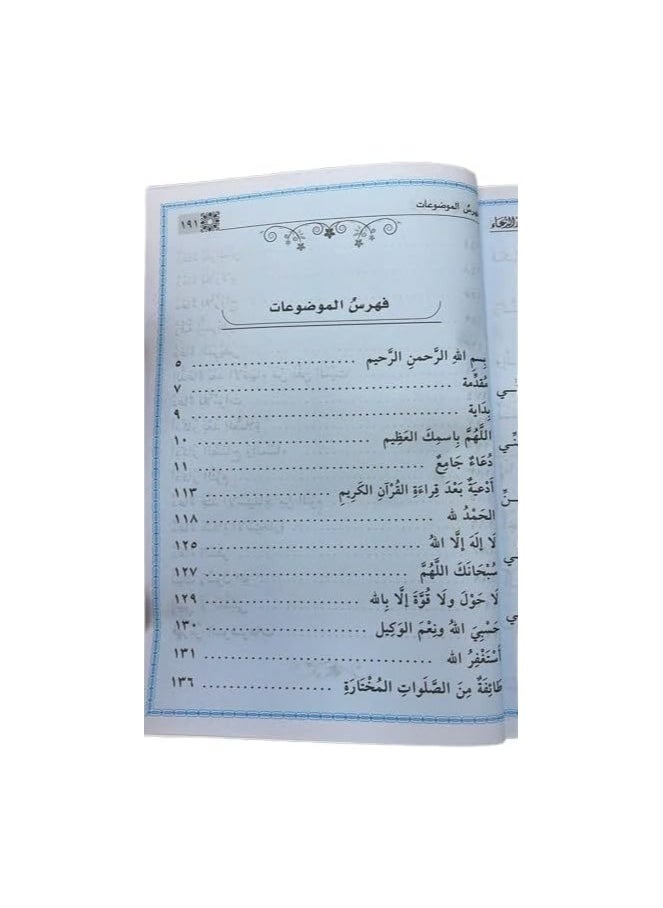 فهرس الموضوعات
١٩١
فهرسُ الموضوعات
بِسمِ اللهِ الرَّحمنِ الرَّحيم ٥
مُقدِّمة ٧
بِدَاية ٩
اللَّهُمَّ بِاسمِكَ العَظِيم ١٠
دُعَاءٌ جَامِعٌ ١١
أَدْعِيَةٌ بَعْدَ قِراءَةِ القُرْآنِ الكَرِيمِ ١١٣
الحَمْدُ لله ١١٨
لَا إِلَهَ إلَّا اللهُ ١٢٥
سُبْحَانَكَ اللَّهُمَّ ١٢٧
لَا حَوْلَ ولَا قُوَّةَ إلَّا بِالله ١٢٩
حَسْبِيَ اللهُ ونِعْمَ الوَكِيل ١٣٠
أَسْتَغْفِرُ الله ١٣١
طَائِفَةٌ مِنَ الصَّلَواتِ المُخْتَارَةِ ١٣٦